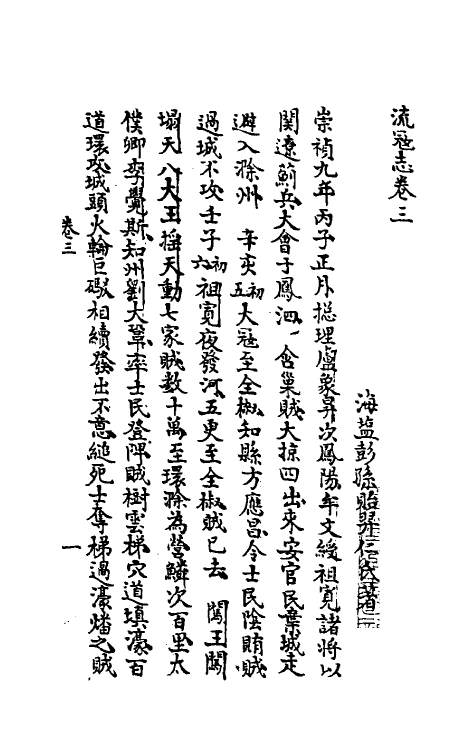 流冦志卷三
海塩彭孫貽羿仁氏著
崇禎九年丙子正月摠理盧象昇次鳳陽年文綬祖寛諸將以
関遼薊兵大會于鳳泗、含巢賊大掠四出来安官民棄城走
避入滁州　辛亥初五大冦至全椒知縣方應昌令士民陰賄賊
過城不攻壬子初六祖寛夜發河五更至全椒賊已去　闖王闖
塌天八大王揺天動七家賊數十萬至環滁為營鱗次百里太
僕卿李覺斯知州劉大鞏率士民登陴賊樹雲梯穴道填濠百
道環攻城頭火輪巨礟相續發出不意縋死士奪梯過濠燔之賊
卷三
一